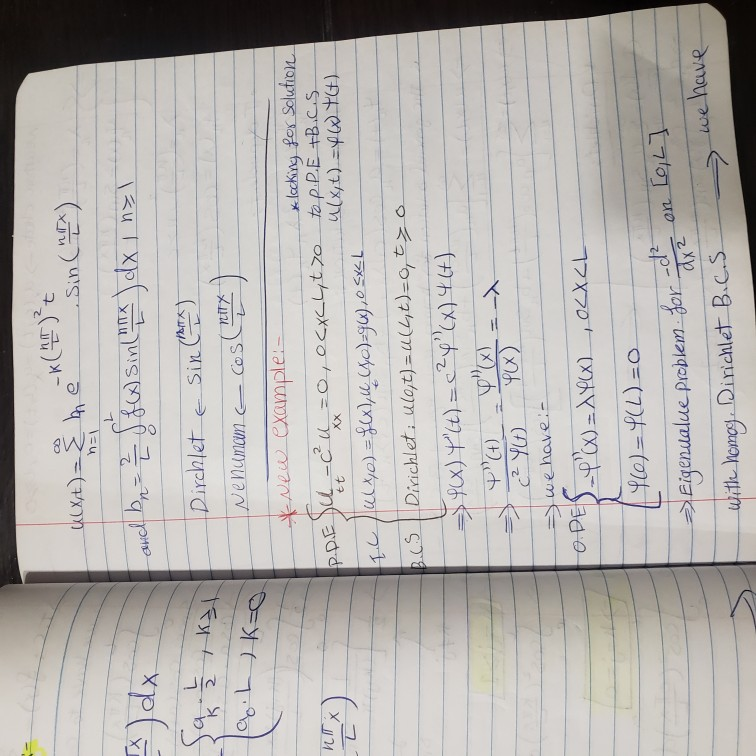 u(x,t) = ∑_{n=1}^{∞} b_n e^{-K(nπ/L)^2 t} . sin(nπx/L)
and b_n = 2/L ∫_0^L f(x) sin(nπx/L) dx , n ≥ 1
Dirchlet ← sin(nπx/L)
Nenumam ← cos(nπx/L)
* New example:-
* looking for solution
to P.D.E + B.C.S
u(x,t) = φ(x) Ψ(t)
P.D.E { u_tt - c² u_xx = 0 , 0<x<L, t>0
I.C u(x,0) = f(x), u_t(x,0) = g(x), 0≤x≤L
B.C.S Dirichlet: u(0,t) = u(L,t) = 0, t ≥ 0
⇒ φ(x) Ψ''(t) = c² φ''(x) Ψ(t)
⇒ Ψ''(t) / c² Ψ(t) = φ''(x) / φ(x) = -λ
⇒ we have:-
O.D.E { -φ''(x) = λφ(x) , 0<x<L
φ(0) = φ(L) = 0
⇒ Eigenvalue problem for -d²/dx² on [0,L]
with homog. Dirichlet B.C.S → we have
πx/L) dx
{ a_K · L/2 , K ≥ 1
a_0 · L , K = 0
nπx/L)